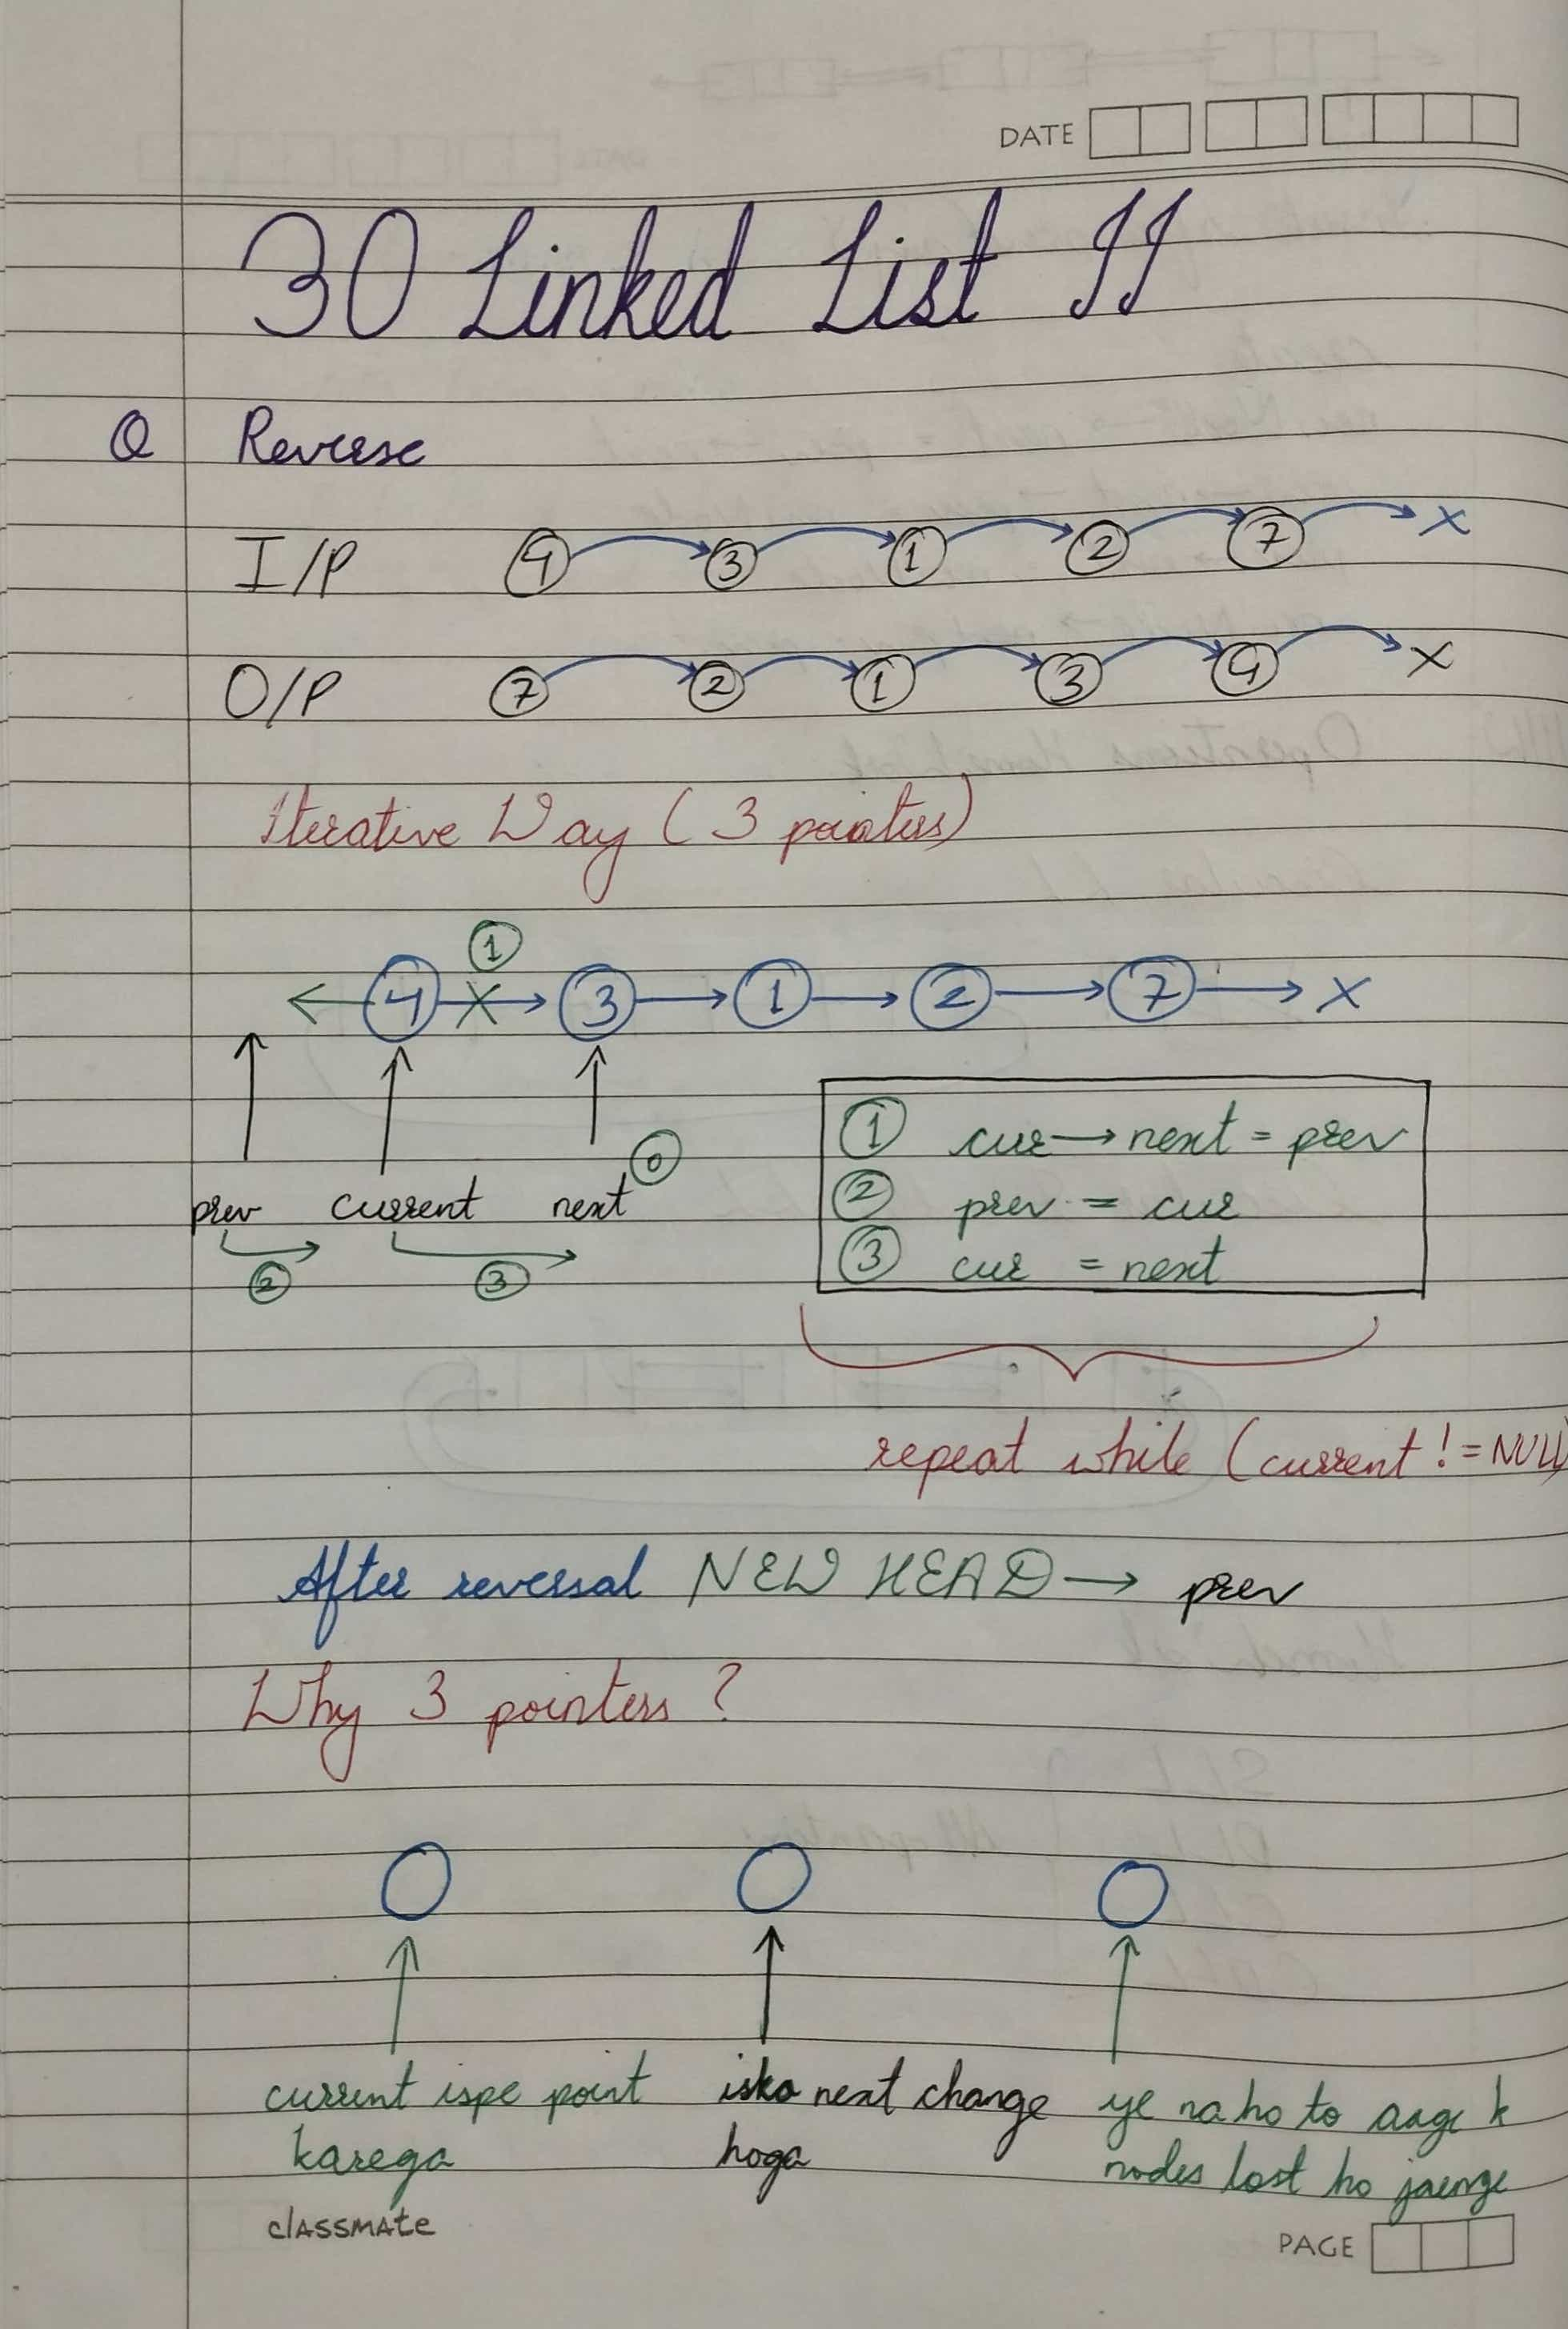 DATE
30 Linked List II
Q Reverse
I/P 4 3 1 2 7 X
O/P 7 2 1 3 4 X
Iterative Way (3 pointers)
1
4 X 3 1 2 7 X
1 cur→next = prev
0
2 prev = cur
prev current next
3 cur = next
2 3
repeat while (current != NULL)
After reversal NEW HEAD → prev
Why 3 pointers ?
current ispe point iska next change ye na ho to aage k
karega hoga nodes lost ho jaenge
classmate
PAGE